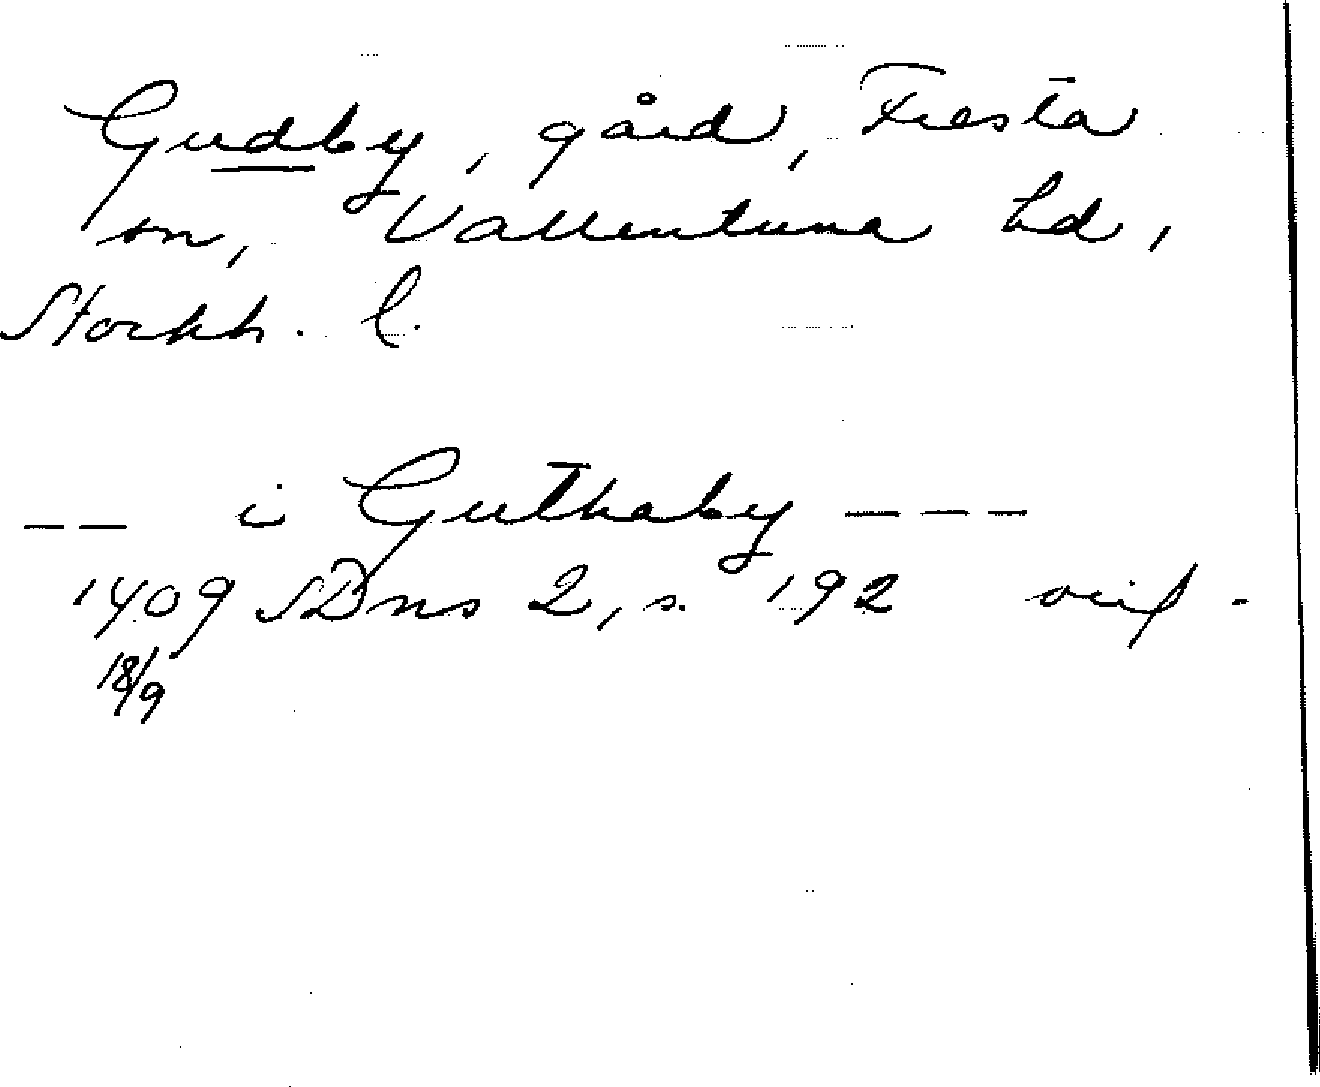 Gudby, gård, Fresta
sn, Vallentuna hd,
Stockh. l.
-- i Guthaby ---
1409 SDns 2, s. 192 orig.
18/9